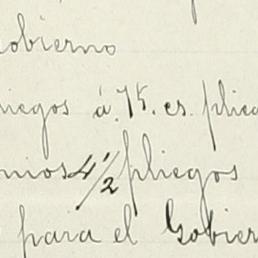 obierno
liegos á 75. cs. plie
nios 4 1/2 pliegos
para el Gobier